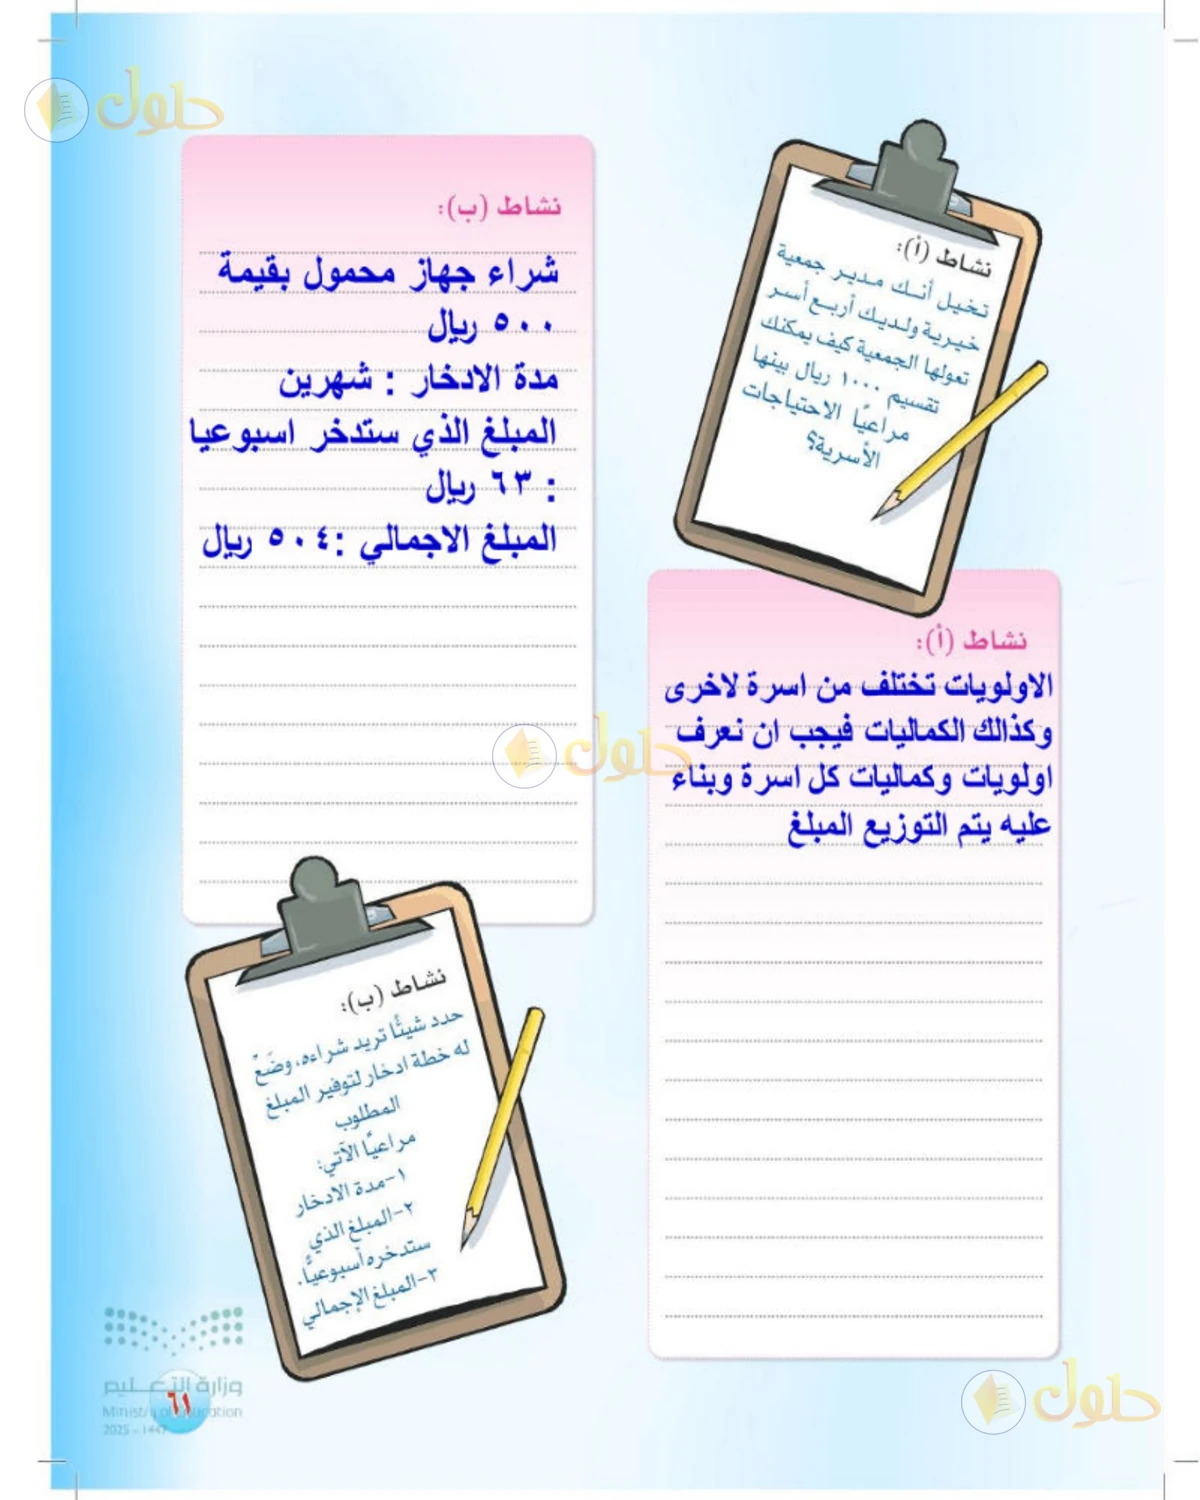 حلول
نشاط (أ):
تخيل أنك مدير جمعية
خيرية ولديك أربع أسر
تعولها الجمعية كيف يمكنك
تقسيم ١٠٠٠ ريال بينها
مراعيًا الاحتياجات
الأسرية؟
نشاط (أ):
الاولويات تختلف من اسرة لاخرى
وكذالك الكماليات فيجب ان نعرف
اولويات وكماليات كل اسرة وبناء
عليه يتم التوزيع المبلغ
نشاط (ب):
شراء جهاز محمول بقيمة
٥٠٠ ريال
مدة الادخار : شهرين
المبلغ الذي ستدخر اسبوعيا
: ٦٣ ريال
المبلغ الاجمالي :٥٠٤ ريال
حلول
نشاط (ب):
حدد شيئًا تريد شراءه، وضَعْ
له خطة ادخار لتوفير المبلغ
المطلوب
مراعيًا الآتي:
١-مدة الادخار
٢-المبلغ الذي
ستدخره أسبوعيًّا.
٣-المبلغ الإجمالي
وزارة التعليم
Ministry of Education
2025 - 1447
٦١
حلول